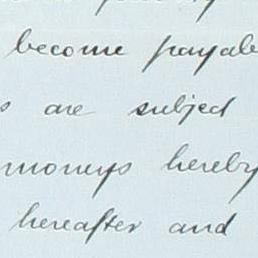 become payable
are subject
moneys hereby
hereafter and